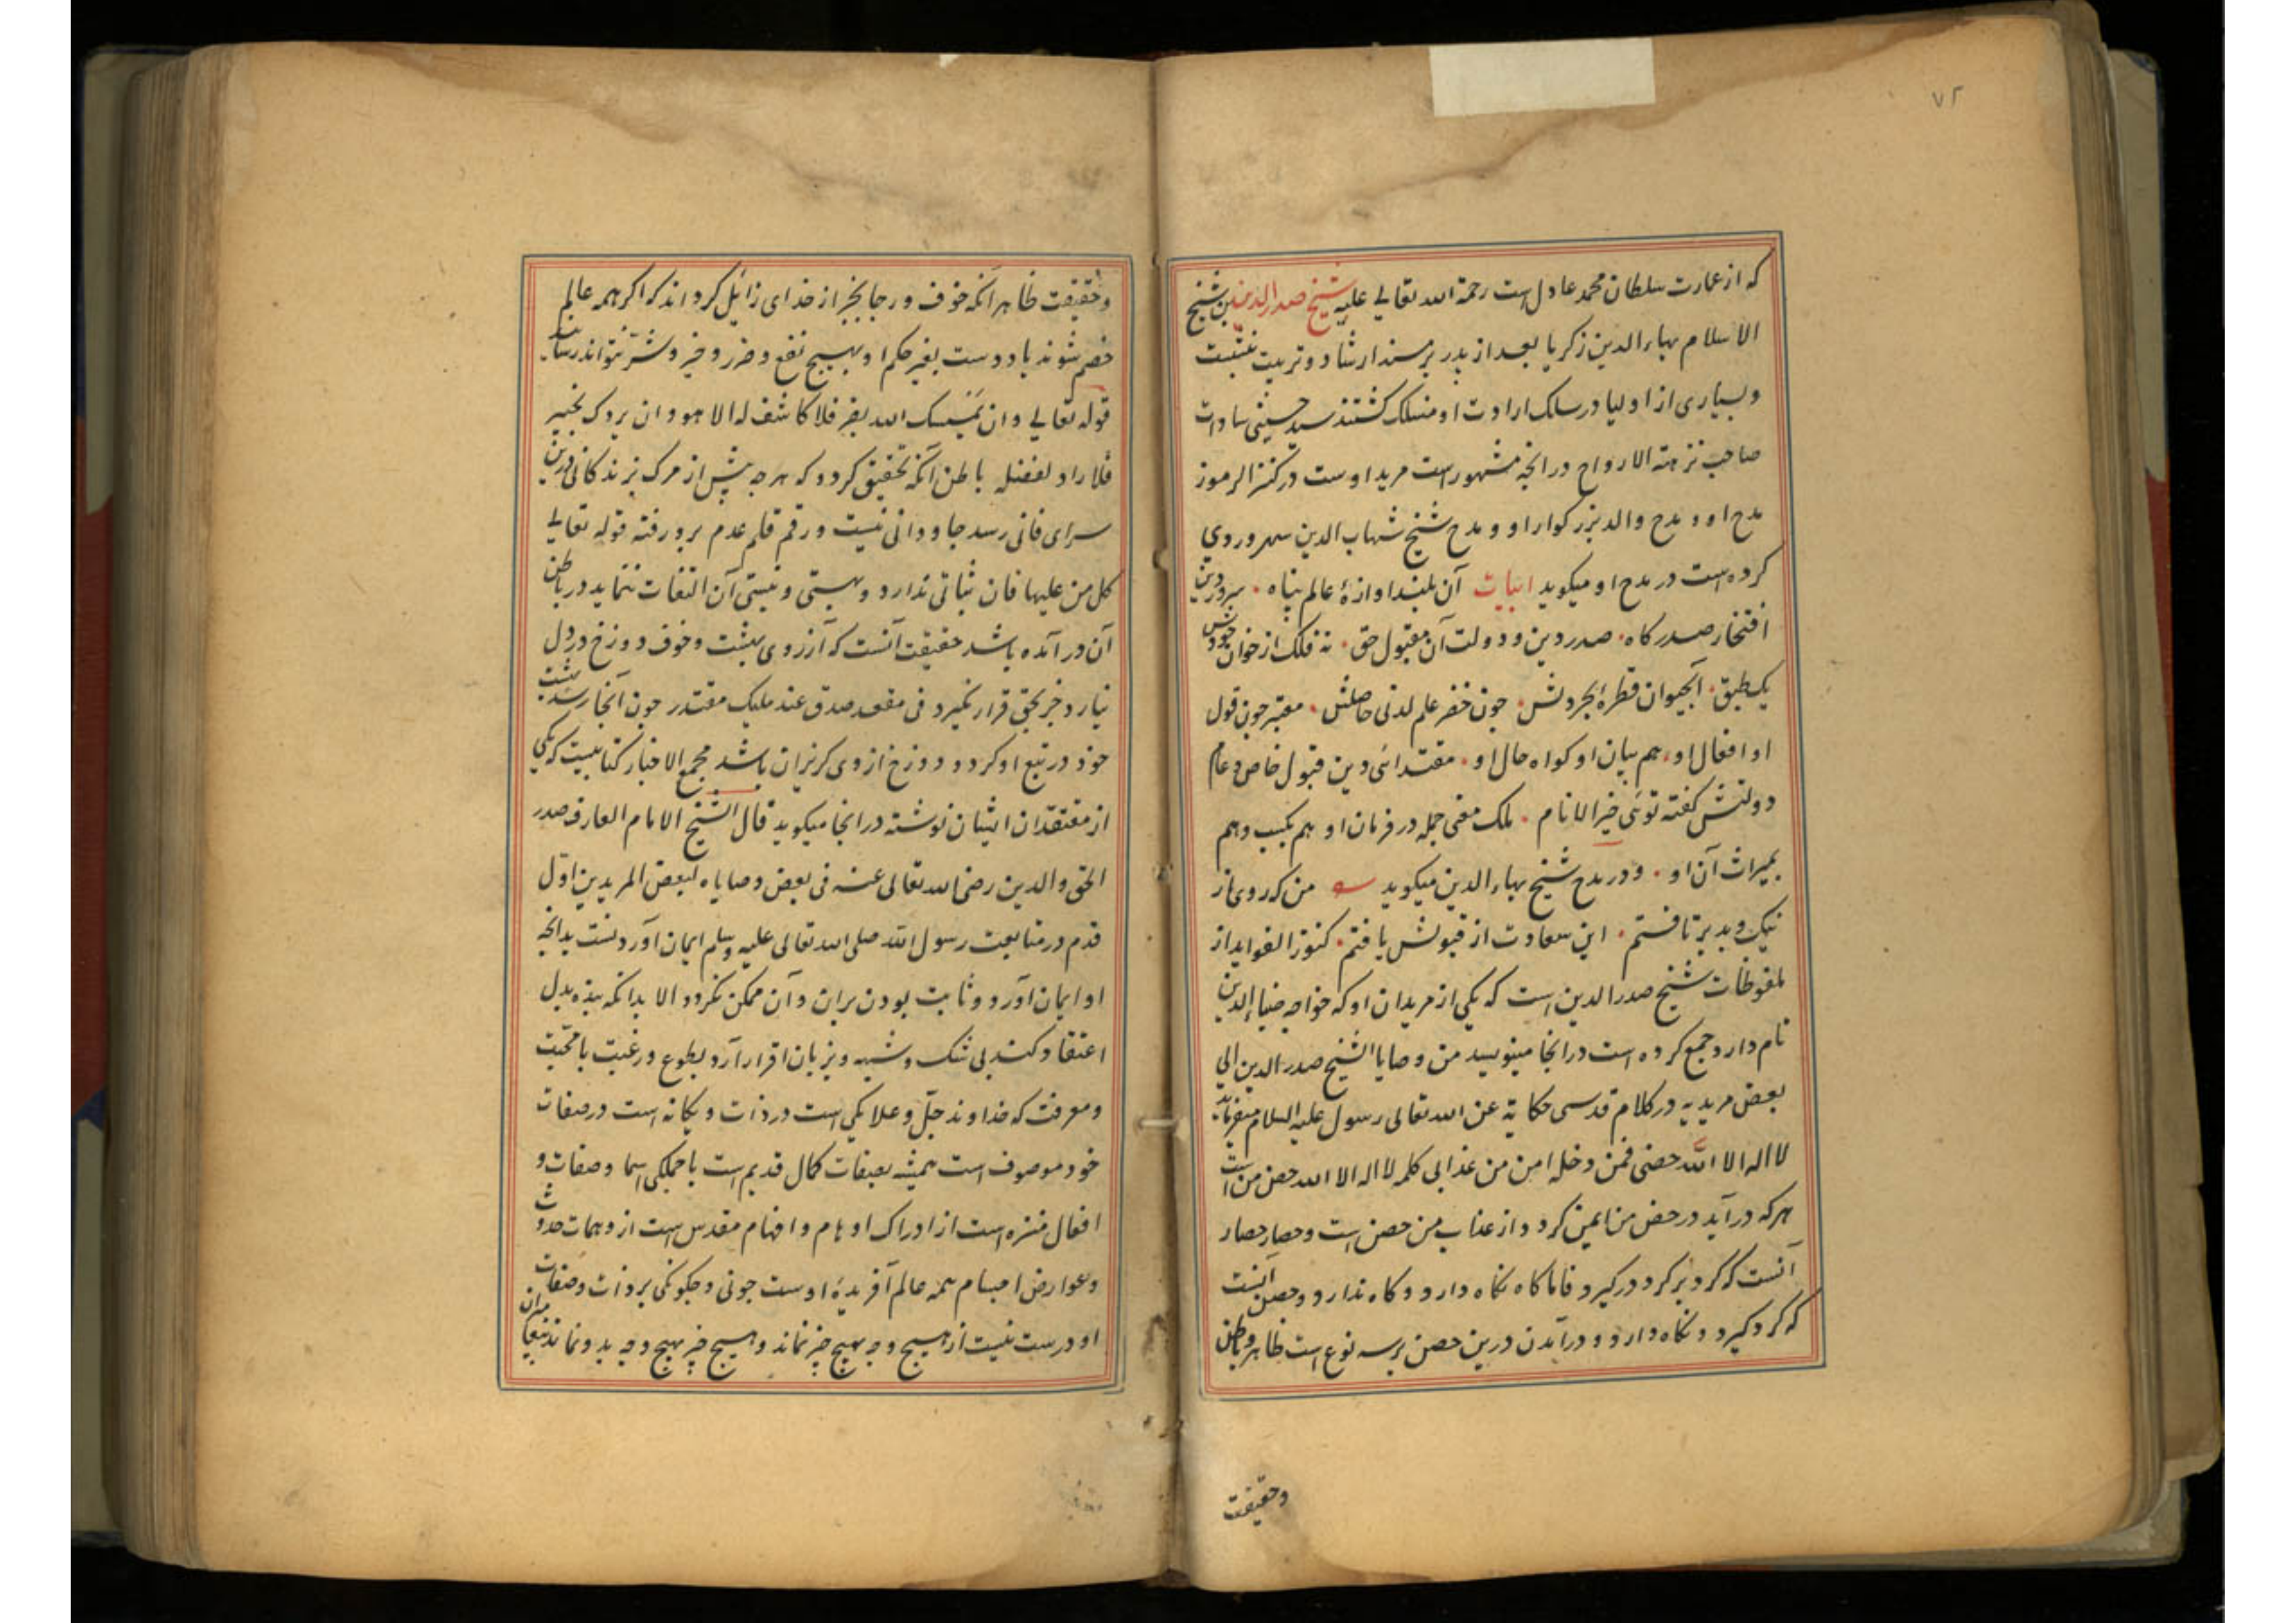 ۷۲
که از عمارت سلطان محمد عادل است رحمة الله تعالی علیه شیخ صدر الدین بن شیخ
الاسلام بهاء الدین زکریا بعد از پدر بر مسند ارشاد و تربیت بنشست
و بسیاری از اولیا در سلک ارادت او منسلک کشتند سید حسینی سادات
صاحب نزهة الارواح در انچه مشهور است مرید اوست در کنز الرموز
مدح او و مدح والد بزرکوار او و مدح شیخ شهاب الدین سهروردی
کرده است در مدح او میکوید ابیات آن بلند اوازۀ عالم پناه سرور دین
افتخار صدر کاه صدر دین و دولت آن مقبول حق نه فلک از خوان جودش
یک طبق آبحیوان قطرۀ بحر دلش جون خضر علم لدنی حاصلش معتبر جون قول
او افعال او هم بیان او کواه حال او مقتدای دین قبول خاص و عام
دولتش کفته توئی خیر الانام ملک معنی جمله در فرمان او هم بکسب و هم
بمیراث آن او و در مدح شیخ بهاء الدین میکوید من که روی از
نیک و بد برتافتم این سعادت از قبولش یافتم کنوز الفواید از
ملفوظات شیخ صدر الدین است که یکی از مریدان او که خواجه ضیاء الدین
نام دارد جمع کرده است در انجا مینویسد من وصایا الشیخ صدر الدین الی
بعض مریدیه در کلام قدسی حکایة عن الله تعالی رسول علیه السلام میفرماید
لا اله الا الله حصنی فمن دخله امن من عذابی کلمه لا اله الا الله حصن من است
هر که درآید در حصن من ایمن کردد از عذاب من حصن است و حصار حصار
آنست که کرد بر کرد درکیرد فاما کاه نکاه دارد و کاه ندارد و حصن آنست
که کرد کیرد و نکاه دارد و درآمدن درین حصن بر سه نوع است ظاهر و باطن
و حقیقت
و حقیقت ظاهر آنکه خوف و رجا بخیر از خدای زایل کرداند که اکر همه عالم
خصم شوند یا دوست بغیر حکم او بهیچ نفع و ضرر و خیر و شر نتوانند رسانید
قوله تعالی و ان یمسسک الله بضر فلا کاشف له الا هو و ان یردک بخیر
فلا راد لفضله باطن آنکه تحقیق کردد که هر چه پیش از مرک بزندکانی درین
سرای فانی رسد جاودانی نیست و رقم قلم عدم برو رفته قوله تعالی
کل من علیها فان ثباتی ندارد و هستی و نیستی آن التفات ننماید در باطن
آن درآمده باشد حقیقت آنست که آرزوی بهشت و خوف دوزخ در دل
نیارد جز بحق قرار نکیرد فی مقعد صدق عند ملیک مقتدر جون آنجا رسد بهشت
خود در تبع او کردد و دوزخ از وی کریزان باشد مجمع الاخبار کتابیست که یکی
از معتقدان ایشان نوشته در انجا میکوید قال الشیخ الامام العارف صدر
الحق والدین رضی الله تعالی عنه فی بعض وصایاه لبعض المریدین اول
قدم در متابعت رسول الله صلی الله تعالی علیه وسلم ایمان آوردنست بدانچه
او ایمان آورد و ثابت بودن بران و آن ممکن نکردد الا بدانکه بنده بدل
اعتقاد کند بی شک و شبهه و بزبان اقرار آرد بطوع و رغبت با محبت
و معرفت که خداوند جل و علا یکی است در ذات و یکانه است در صفات
خود موصوف است همیشه بصفات کمال قدیم است با جملکی اسما و صفات و
افعال منزه است از ادراک اوهام و افهام مقدس است از وهمات حدوث
و عوارض اجسام همه عالم آفریدۀ اوست جونی و جکونکی بر ذات و صفات
او درست نیست از هیچ وجه بهیچ جیز نماند و هیچ جیز بهیچ وجه بدو نماند